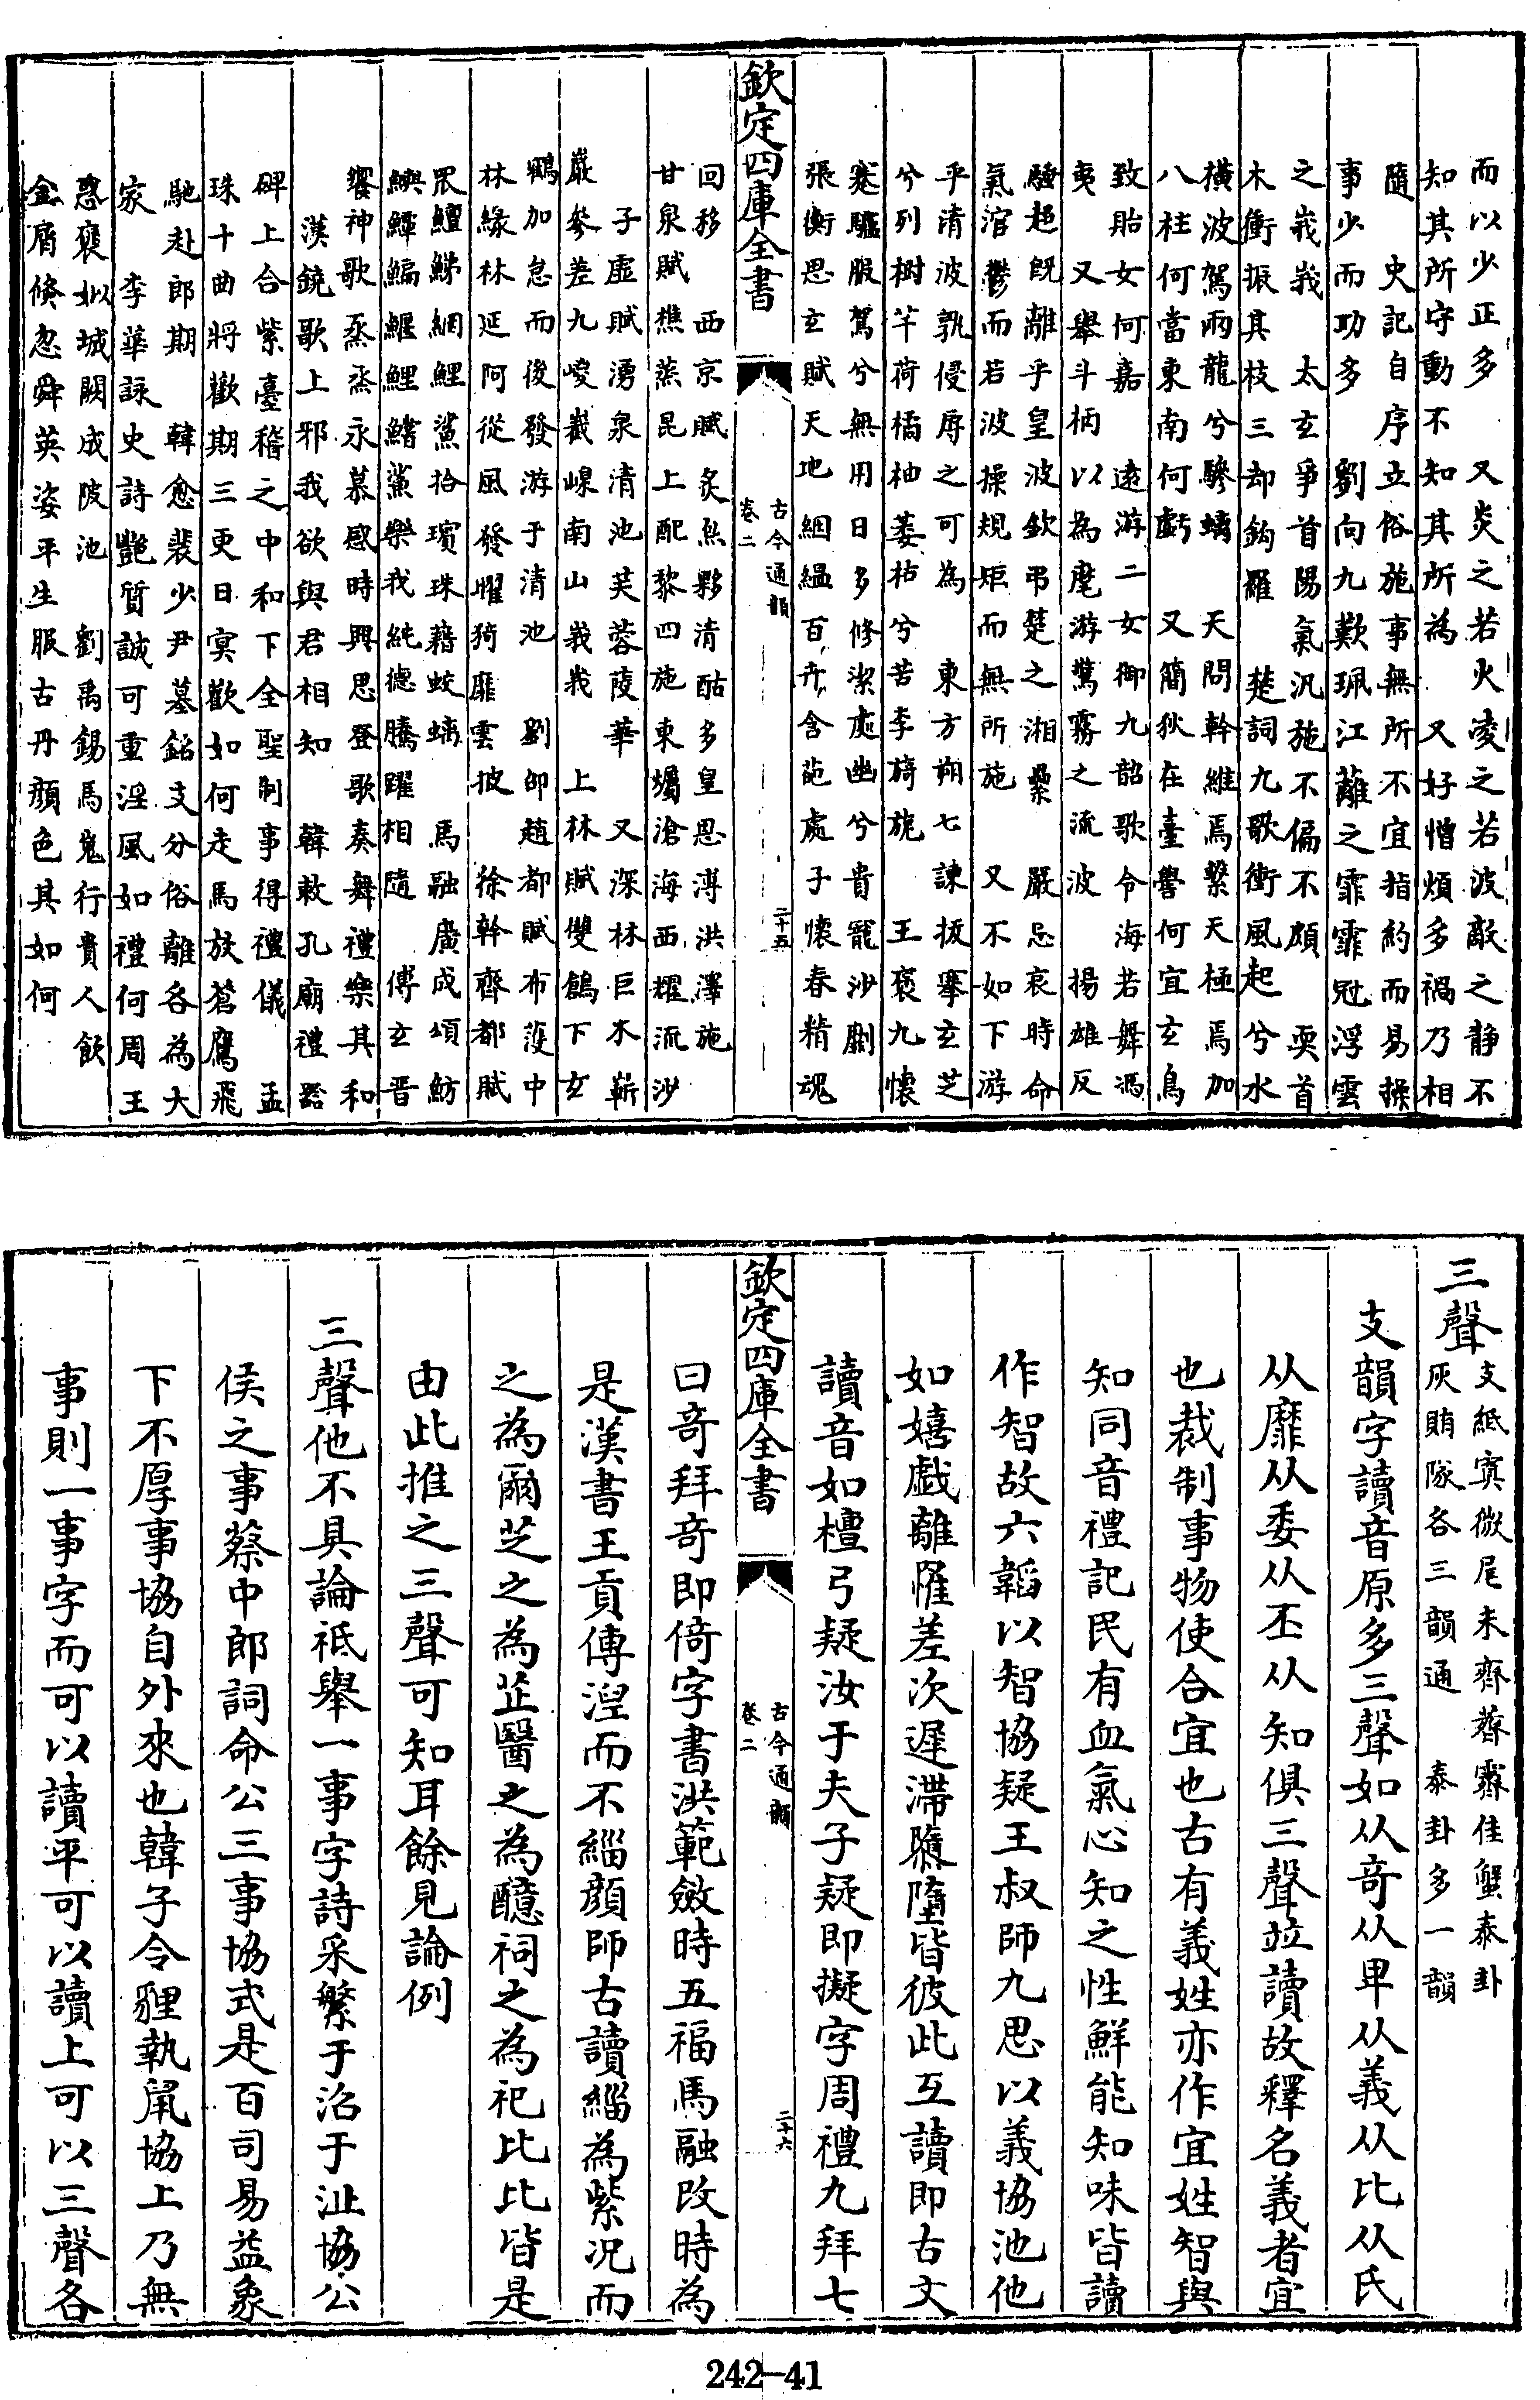 而以少正多　又炎之若火凌之若波敵之静不
知其所守動不知其所為　又好憎煩多禍乃相
隨　史記自序立俗施事無所不宜指約而易操
事少而功多　劉向九歎珮江蘺之霏霏兮浮雲
之峩峩　太玄爭首陽氣汎施不偏不頗　耎首
木衝振其枝三却鈎羅　楚詞九歌衝風起兮水
橫波駕兩龍兮驂螭　天問斡維焉繫天極焉加
八柱何當東南何虧　又簡狄在臺嚳何宜玄鳥
致貽女何嘉　遠游二女御九韶歌令海若舞馮
夷　又舉斗柄以為麾游驚霧之流波　揚雄反
騷超既離乎皇波欽弔楚之湘纍　嚴忌哀時命
氣涫鬱而若波操規矩而無所施　又不如下游
乎清波孰侵辱之可為　東方朔七諫拔搴玄芝
兮列樹芋荷橘柚萎枯兮苦李旖旎　王襃九懷
蹇驢服駕兮無用日多修潔處幽兮貴寵沙劘
張衡思玄賦天地絪縕百卉含葩處子懷春精魂
欽定四庫全書
古今通韻
卷二
二十五
回移　西京賦炙炰夥清酤多皇恩溥洪澤施
甘泉賦樵蒸昆上配黎四施東爥滄海西耀流沙
子虛賦湧泉清池芙蓉蔆華　又深林巨木嶄
巖參差九嵕嶻嶭南山峩峩　上林賦雙鶬下玄
鶴加怠而後發游于清池　劉卲趙都賦布濩中
林緣林延阿從風發燿猗靡雲披　徐幹齊都賦
罛鱣鮷網鯉鯊拾璸珠藉蛟螭　馬融廣成頌魴
鱮鱏鯿鰋鯉鱨鯊樂我純德騰躍相隨　傅玄晋
饗神歌烝烝永慕感時興思登歌奏舞禮樂其和
漢鐃歌上邪我欲與君相知　韓敕孔廟禮器
碑上合紫臺稽之中和下全聖制事得禮儀　孟
珠十曲將歡期三更日冥歡如何走馬放蒼鷹飛
馳赴郎期　韓愈裴少尹墓銘支分俗離各為大
家　李華詠史詩艷質誠可重淫風如禮何周王
惑襃姒城闕成陂池　劉禹錫馬嵬行貴人飲
金屑倏忽舜英姿平生服古丹顔色其如何
三聲
支紙寘微尾未齊薺霽佳蟹泰卦
灰賄隊各三韻通　泰卦多一韻
支韻字讀音原多三聲如从奇从卑从義从比从氏
从靡从委从丕从知俱三聲竝讀故釋名義者宜
也裁制事物使合宜也古有義姓亦作宜姓智與
知同音禮記民有血氣心知之性鮮能知味皆讀
作智故六韜以智協疑王叔師九思以義協池他
如嬉戲離罹差次遲滯隳墮皆彼此互讀即古文
讀音如檀弓疑汝于夫子疑即擬字周禮九拜七
欽定四庫全書
古今通韻
卷二
二十六
曰奇拜奇即倚字書洪範斂時五福馬融改時為
是漢書王貢傳湼而不緇顔師古讀緇為紫况而
之為爾芝之為芷醫之為醷祠之為祀比比皆是
由此推之三聲可知耳餘見論例
三聲他不具論祇舉一事字詩采蘩于沼于沚協公
侯之事蔡中郎詞命公三事協式是百司易益象
下不厚事協自外來也韓子令貍執鼠協上乃無
事則一事字而可以讀平可以讀上可以三聲各
242-41